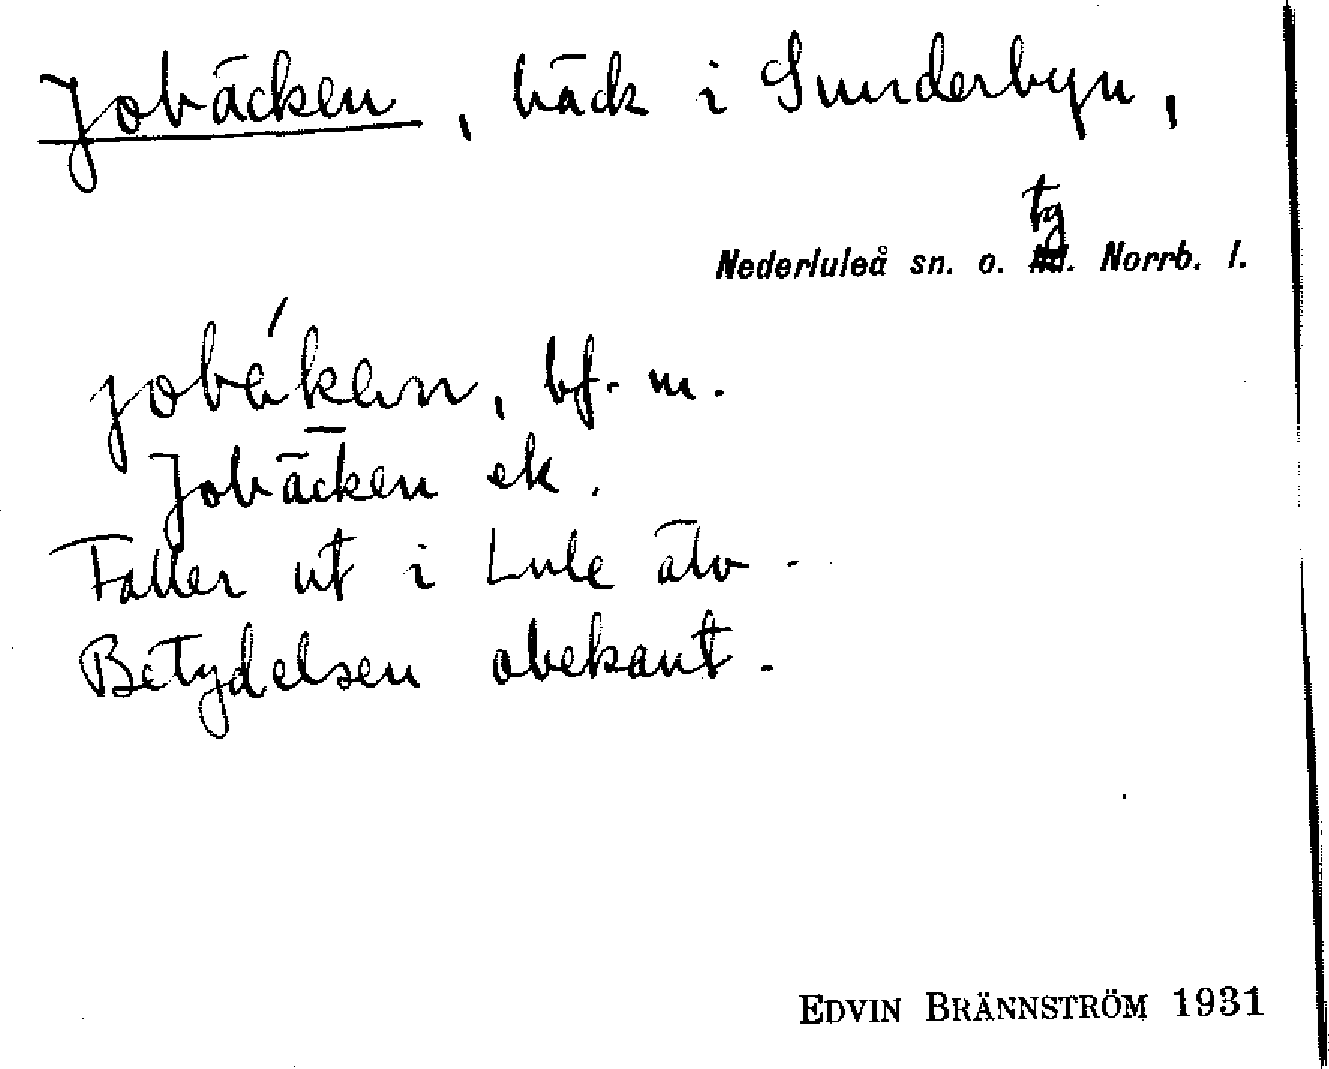 Jobäcken, bäck i Sunderbyn,
tg
Nederluleå sn. o. Norrb. l.
bf. m.
Jobäcken ek.
Faller ut i Lule älv.
Betydelsen obekant.
EDVIN BRÄNNSTRÖM 1931